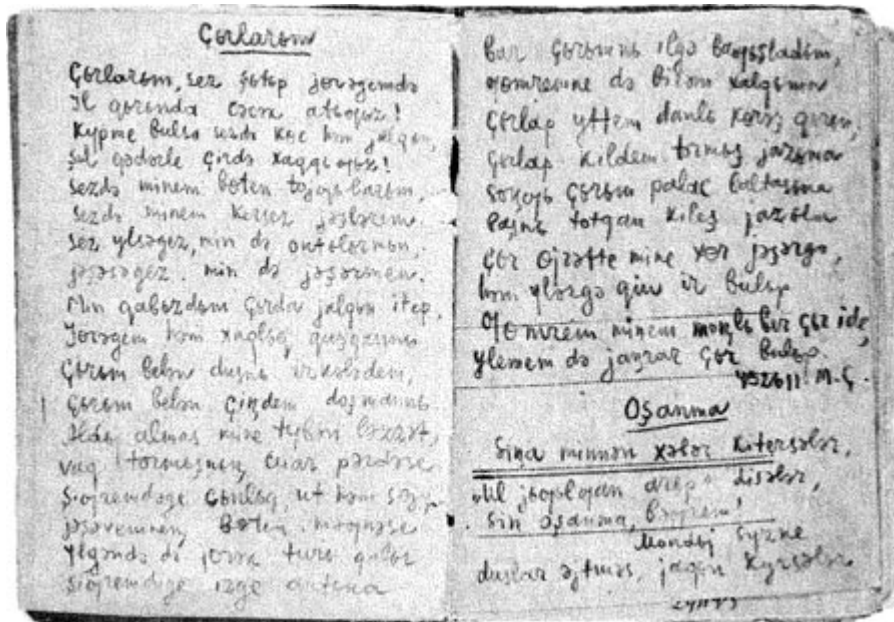 Çьrlarьm
Çьrlarьm, sez şьtьp jɵrəgemdə
Il qьrьnda cəcək atьƣьz!
Kypme bulsa sezdə kɵc həm jalqьn,
Şul qədərle çirdə xaqqьƣьz!
Sezdə minem bɵten tojƣьlarьm,
Sezdə minem kersez jəşlərem.
Sez ylsəgez, min də onьtьlьrmьn,
jəşəsəgez, min də jəşərmen.
Min qabьzdьm çьrda jalqьn itep,
Jɵrəgem həm xaqlьq quşqannь
Çьrьm belən dusnь irkələdem,
Çьrьm belən çiŋdem doşmannь.
Aldьj almas mine tybən ləzzət,
vaq tormьşnьŋ cuar pərdəse
Şiƣremdəge cьnlьq, ut həm sɵjy
jəşəvemneŋ bɵten məƣnəse
Ylgəndə də jɵrək turь qalьr
Şiƣremdəge izge antьna
Bar çьrьmnь ilgə baƣьşladьm,
ƣomremne də birəm xalqьma
Çьrlap yttem danlь kɵrəş qьrьn,
Çьrlap kildem tormьş jazьna
Soŋƣь çьrьm palac baltasьna
Başnь totqan kileş jazьla
Çьr ɵjrətte mine xɵr jəşərgə,
həm ylərgə qьju ir bulьp
Ƣomrem minem moŋlь ber çьr ide,
ylemem də jaŋrar çьr bulьp.
M.Ç.
Oşanma
Siŋa minnən xəbər kitersələr,
disələr,
Sin oşanma,
duslar əjtməs, jaqьn kyrsələr